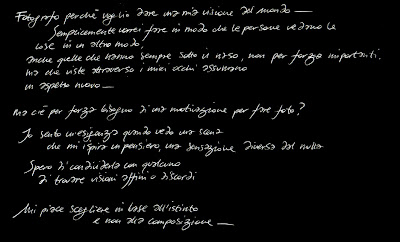 Fotografo perché voglio dare una mia visione del mondo —
Semplicemente vorrei fare in modo che le persone vedano le
cose in un altro modo,
anche quelle che hanno sempre sotto il naso, non per forza importanti,
ma che viste attraverso i miei occhi assumano
un aspetto nuovo —
Ma c'è per forza bisogno di una motivazione per fare foto?
Io sento un'esigenza quando vedo una scena
che mi ispira un pensiero, una sensazione diversa dal nulla
Spero di condividerla con qualcuno
di trovare visioni affini o discordi
Mi piace scegliere in base all'istinto
e non alla composizione —